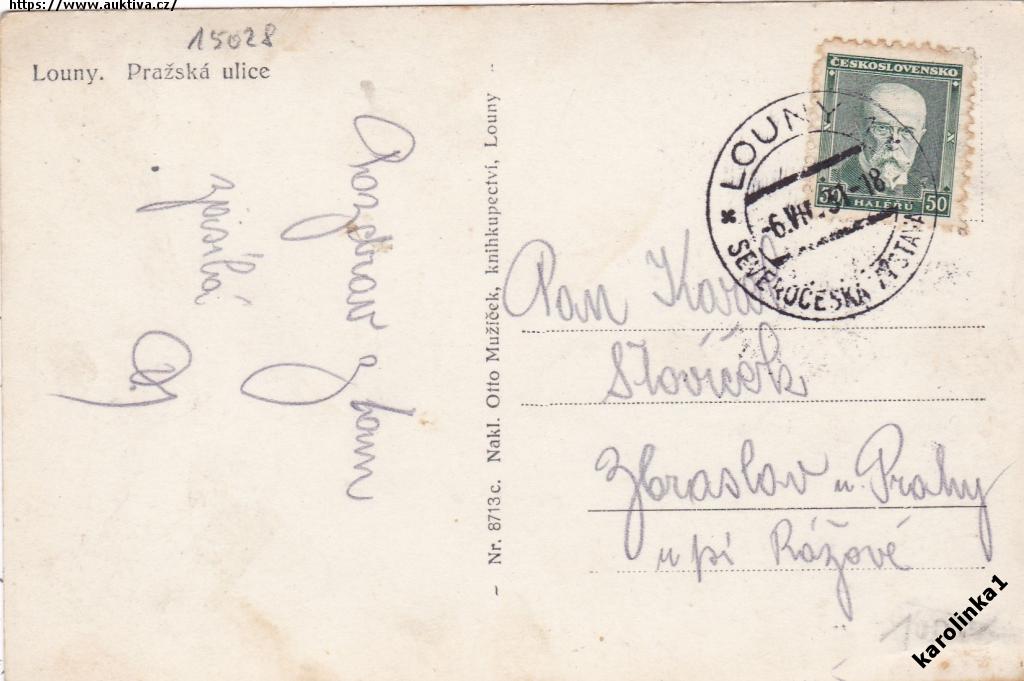 https://www.auktiva.cz/
15028
Louny. Pražská ulice
Pozdrav z Loun
zasílá
Nr. 8713 c. Nakl. Otto Mužíček, knihkupectví, Louny
ČESKOSLOVENSKO
50 HALÉŘŮ 50
LOUNY
-6.VIII.31-18
SEVEROČESKÁ VÝSTAVA
Pan Karel
Slavíček
Zbraslav u Prahy
u pí Rážové
karolinka1